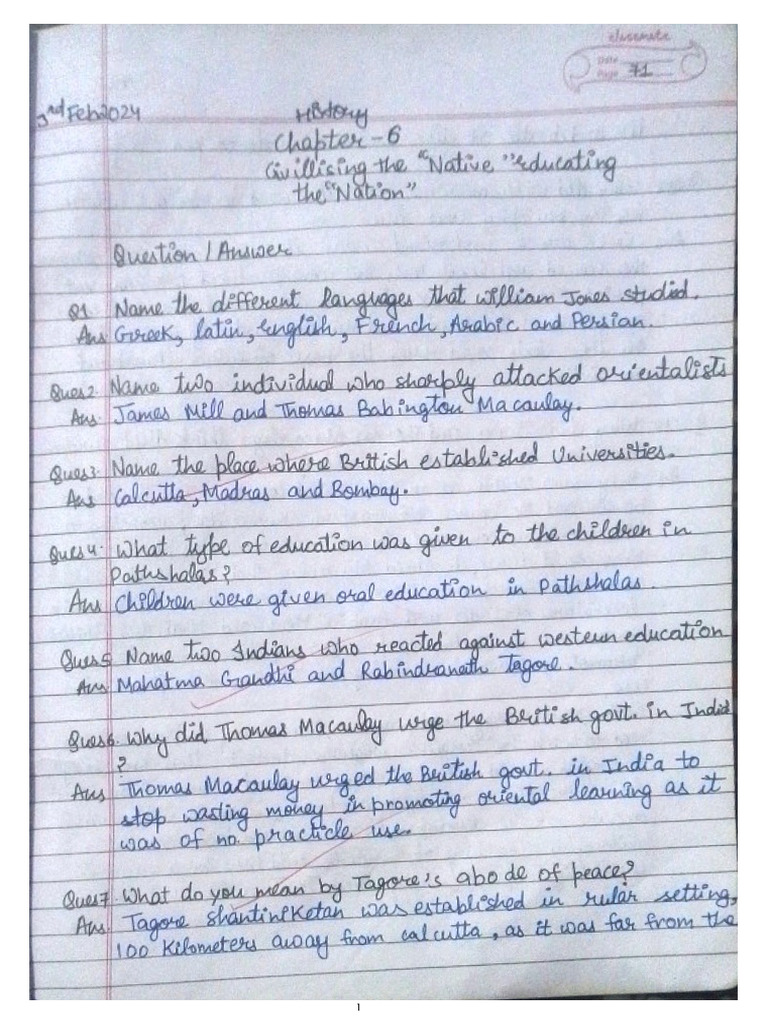 classmate
Date
Page 71
3rd Feb 2024
History
Chapter-6
Civillising the "Native" Educating
the "Nation"
Question / Answer
Q1. Name the different languages that william Jones studied.
Ans Greek, latin, English, French, Arabic and Persian.
Ques2. Name two individual who sharply attacked orientalists
Ans. James Mill and Thomas Babington Macaulay.
Ques3. Name the place where British established Universities.
Ans Calcutta, Madras and Bombay.
Ques4. What type of education was given to the children in
Pathshalas?
Ans Children were given oral education in Pathshalas
Ques5 Name two Indians who reacted against western education
Ans Mahatma Grandhi and Rabindranath Tagore.
Ques6. Why did Thomas Macaulay urge the British govt. in India
?
Ans Thomas Macaulay urged the British govt. in India to
stop wasting money in promoting oriental learning as it
was of no practicle use.
Ques7. What do you mean by Tagore's abode of peace?
Ans. Tagore shantiniketan was established in rular setting,
100 Kilometers away from calcutta, as it was far from the
1